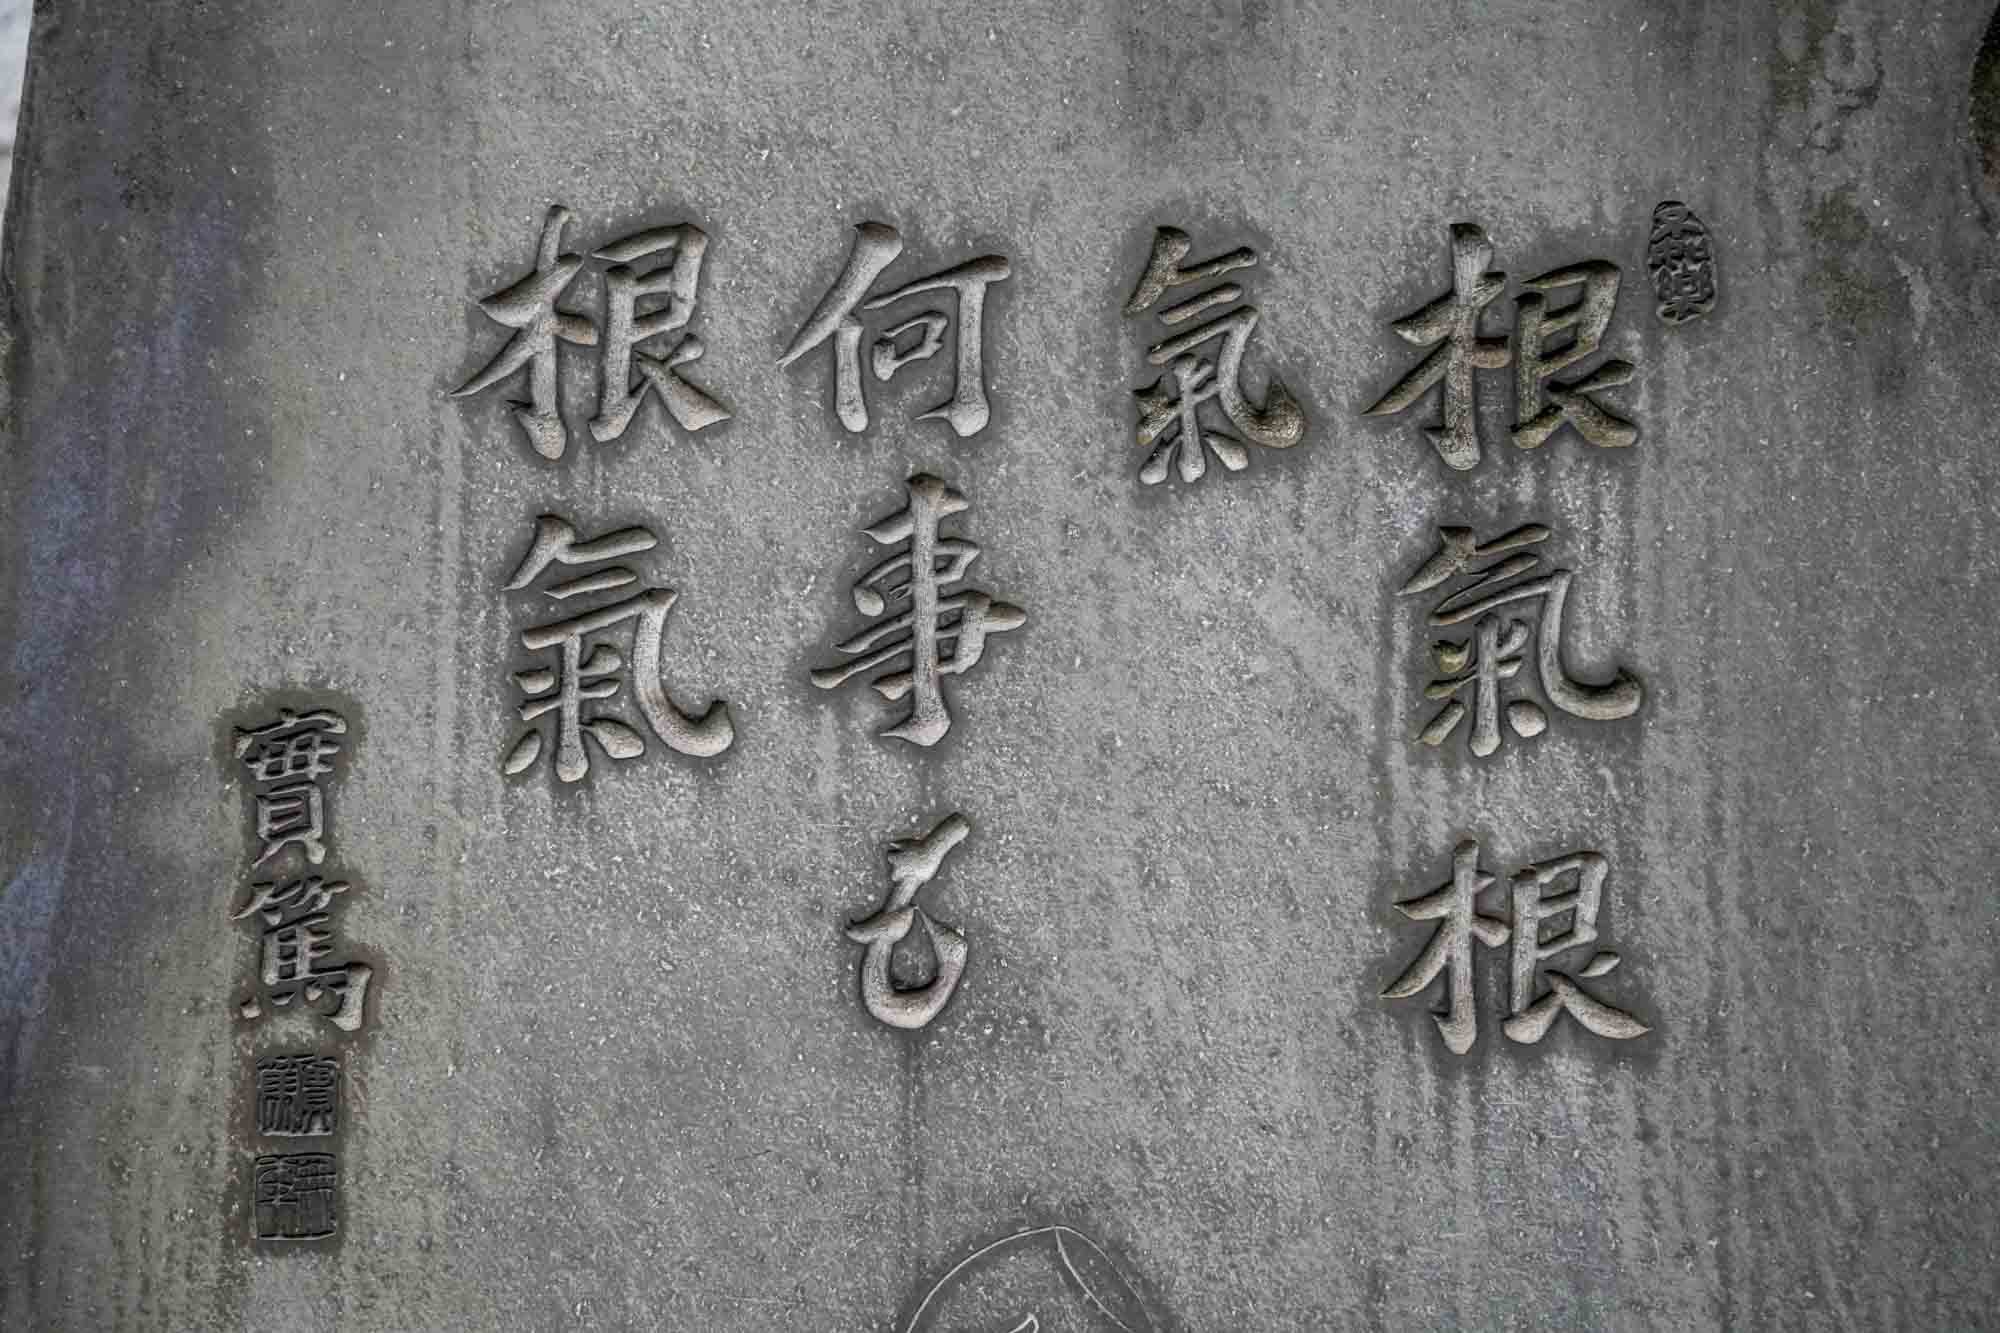 根氣根
氣
何事も
根氣
實篤